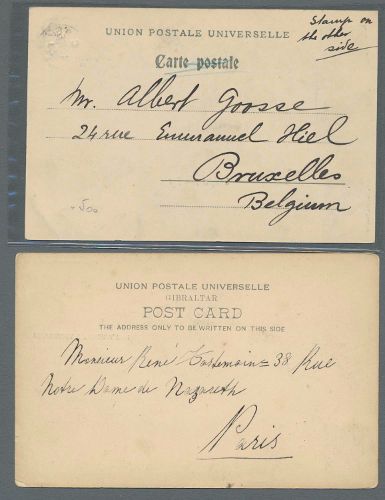 UNION POSTALE UNIVERSELLE
Stamp on
the other
side
Carte postale
Mr. Albert Goosse
24 rue Emmanuel Hiel
Bruxelles
Belgium
500
UNION POSTALE UNIVERSELLE
GIBRALTAR
POST CARD
THE ADDRESS ONLY TO BE WRITTEN ON THIS SIDE
Monsieur René 38 Rue
Notre Dame de Nazareth
Paris